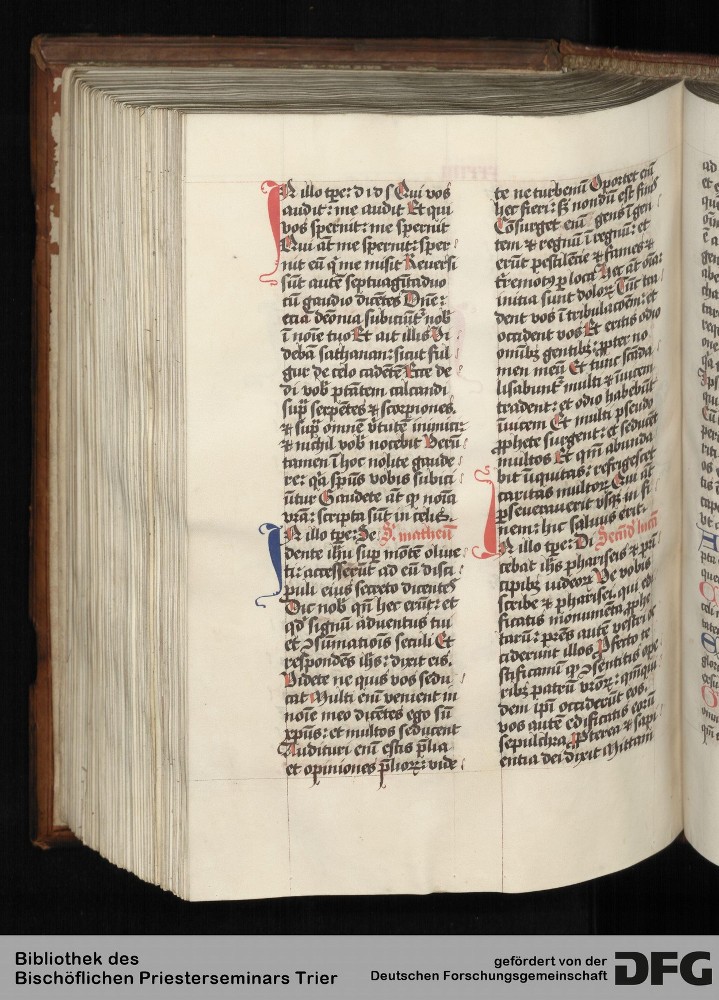 In illo tpe: d i d s Qui vos
audit: me audit Et qui
vos spernit: me spernit
Qui at me spernit: sper
nit eu q me misit Reuersi
sut autē septuagita duo
cu gaudio dicetes Dne:
etia demonia subiciutr nob
i noie tuo Et ait illis Vi
debā sathanan: sicut ful
gur de celo cadētē Ecce de
di vob ptātem calcandi
sup serpētes & scorpiones.
& sup omnē virtutē inimici:
& nichil vob nocebit Verū
tamen i hoc nolite gaude
re: qa spūs vobis subici
ūtur Gaudete āt q noīa
vrā: scripta sūt in celis.
In illo tpe: Se S. matheū
dente ihū sup mōte oliue
ti: accesserūt ad eū disci
puli eius secreto dicentes
Dic nob qn hec erūt: et
qd signū aduentus tui
et ꝯsumationis seculi Et
respondēs ihs: dixit eis.
Videte ne quis vos sedu
cat Multi eni venient in
noīe meo dicētes ego sū
xpus: et multos seducent
Audituri enī estis plia
et opiniones plioꝝ: vide
te ne turbemī Oportet enī
hec fieri: sꝫ nondū est finis
Cōsurget enī gens ī gen
tem & regnū ī regnū: et
erūt pestilētie & fames &
tremotꝰ p loca Hec āt oīa:
initia sunt doloꝝ Tūc tra
dent vos ī tribulacōem: et
occident vos Et eritis odio
omībꝫ gentibꝫ: ppter no
men meū Et tunc scāda
lisabunt multi & inuicem
tradent: et odio habebūt
īuicem Et multi pseudo
pphete surgent: et seducēt
multos Et qm abunda
bit iniquitas: refrigescet
caritas multoꝝ Qui āt
pseuerauerit vsqꝫ in fi
nem: hic saluus erit.
In illo tpe: Di Secūd lucā
cebat ihs phariseis & prī
cipibꝫ iudeoꝝ Ve vobis
scribe & pharisei. qui edi
ficatis monumēta pphe
tarū: prēs autē vestri oc
ciderunt illos Profecto te
stificamī q ꝯsentitis ope
ribꝫ patrū vroꝝ: qmqui
dem ipī occiderūt eos.
vos autē edificatis eorū
sepulchra Propterea & sapi
entia dei dixit Mittam
Bibliothek des
Bischöflichen Priesterseminars Trier
gefördert von der
Deutschen Forschungsgemeinschaft
DFG